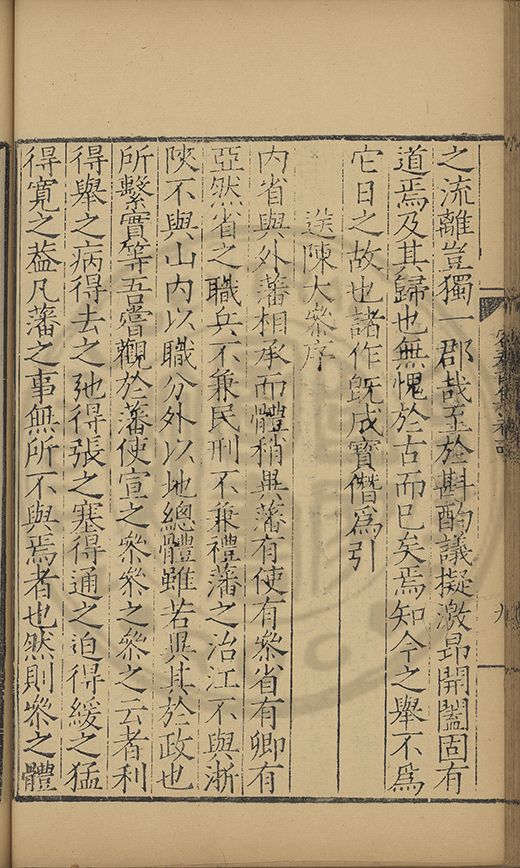 之流離豈獨一郡哉至於斟酌議擬激昂開闔固有
道焉及其歸也無愧於古而已矣焉知今之舉不爲
它日之故也諸作旣成寳僭爲引
送陳大叅序
内省與外藩相承而體稍異藩有使有叅省有卿有
亞然省之職兵不兼民刑不兼禮藩之治江不與浙
陜不與山内以職分外以地總體雖若異其於政也
所繫實等吾嘗觀於藩使宣之叅叅之叅之云者利
得舉之病得去之弛得張之塞得通之迫得緩之猛
得寛之葢凡藩之事無所不與焉者也然則叅之體